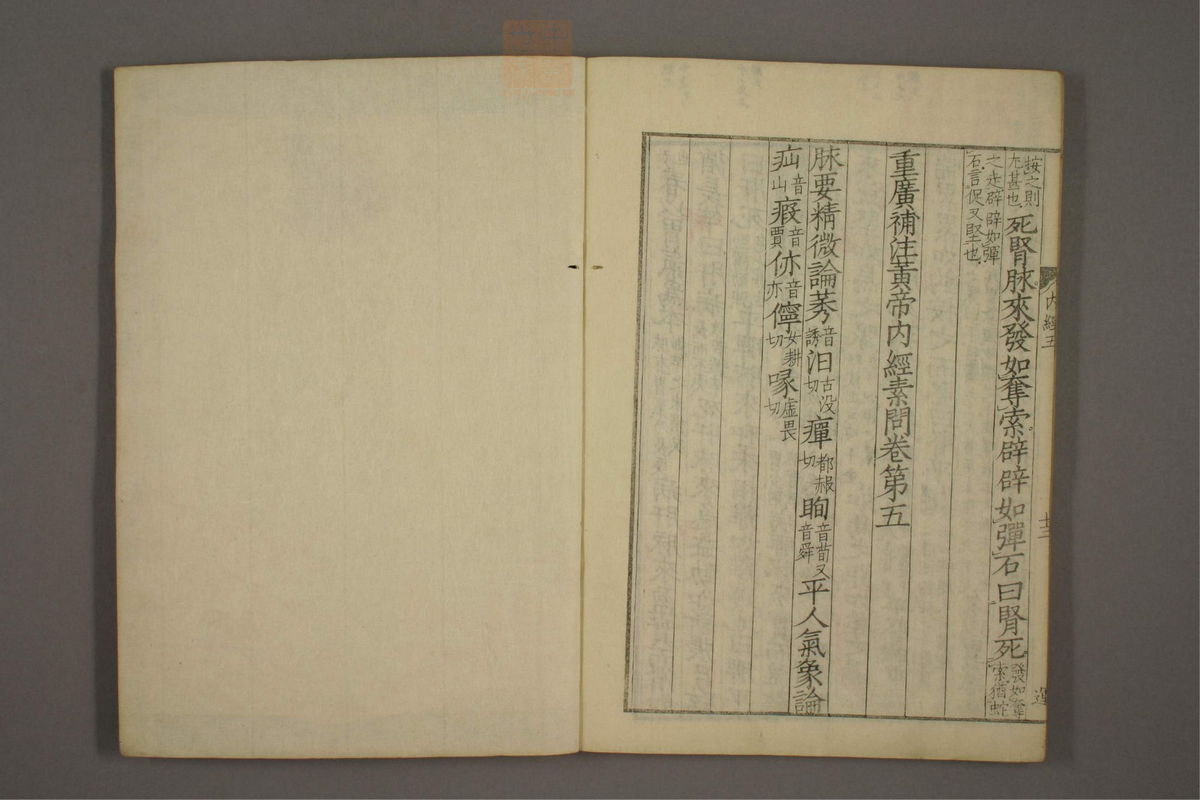 按之則
尤甚也
死腎脉來發如奪索辟辟如彈石曰腎死
發如奪
索猶蛇
之走辟辟如彈
石言促又堅也
重廣補注黃帝內經素問卷第五
脉要精微論莠音誘汩古没切癉都赧切眴音荀又音舜平人氣象論
疝音山瘕音賈㑊音亦儜女耕切喙虛畏切
內經五
十三